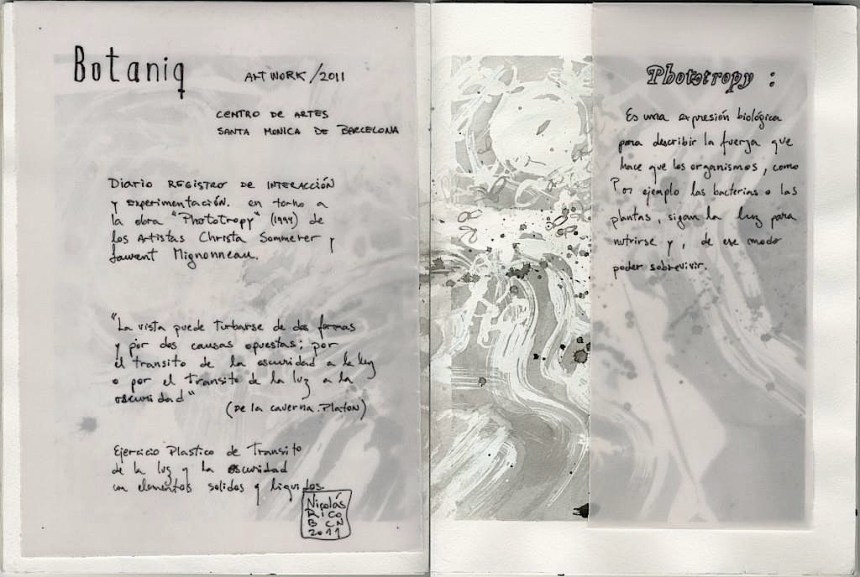 Botaniq
ART WORK / 2011
CENTRO DE ARTES
SANTA MONICA DE BARCELONA
Diario REGISTRO DE INTERACCIÓN
y experimentación. en torno a
la obra "Phototropy" (1994) de
los Artistas Christa Sommerer y
Laurent Mignonneau.
"La vista puede turbarse de dos formas
y por dos causas opuestas; por
el transito de la oscuridad a la luz
o por el transito de la luz a la
oscuridad"
(De la caverna. Platon)
Ejercicio Plastico de Transito
de la luz y la oscuridad
con elementos solidos y liquidos
Nicolás
Rico
BCN
2011
Phototropy :
Es una expresión biológica
para describir la fuerza que
hace que los organismos, como
Por ejemplo las bacterias o las
plantas, sigan la luz para
nutrirse y, de ese modo
poder sobrevivir.